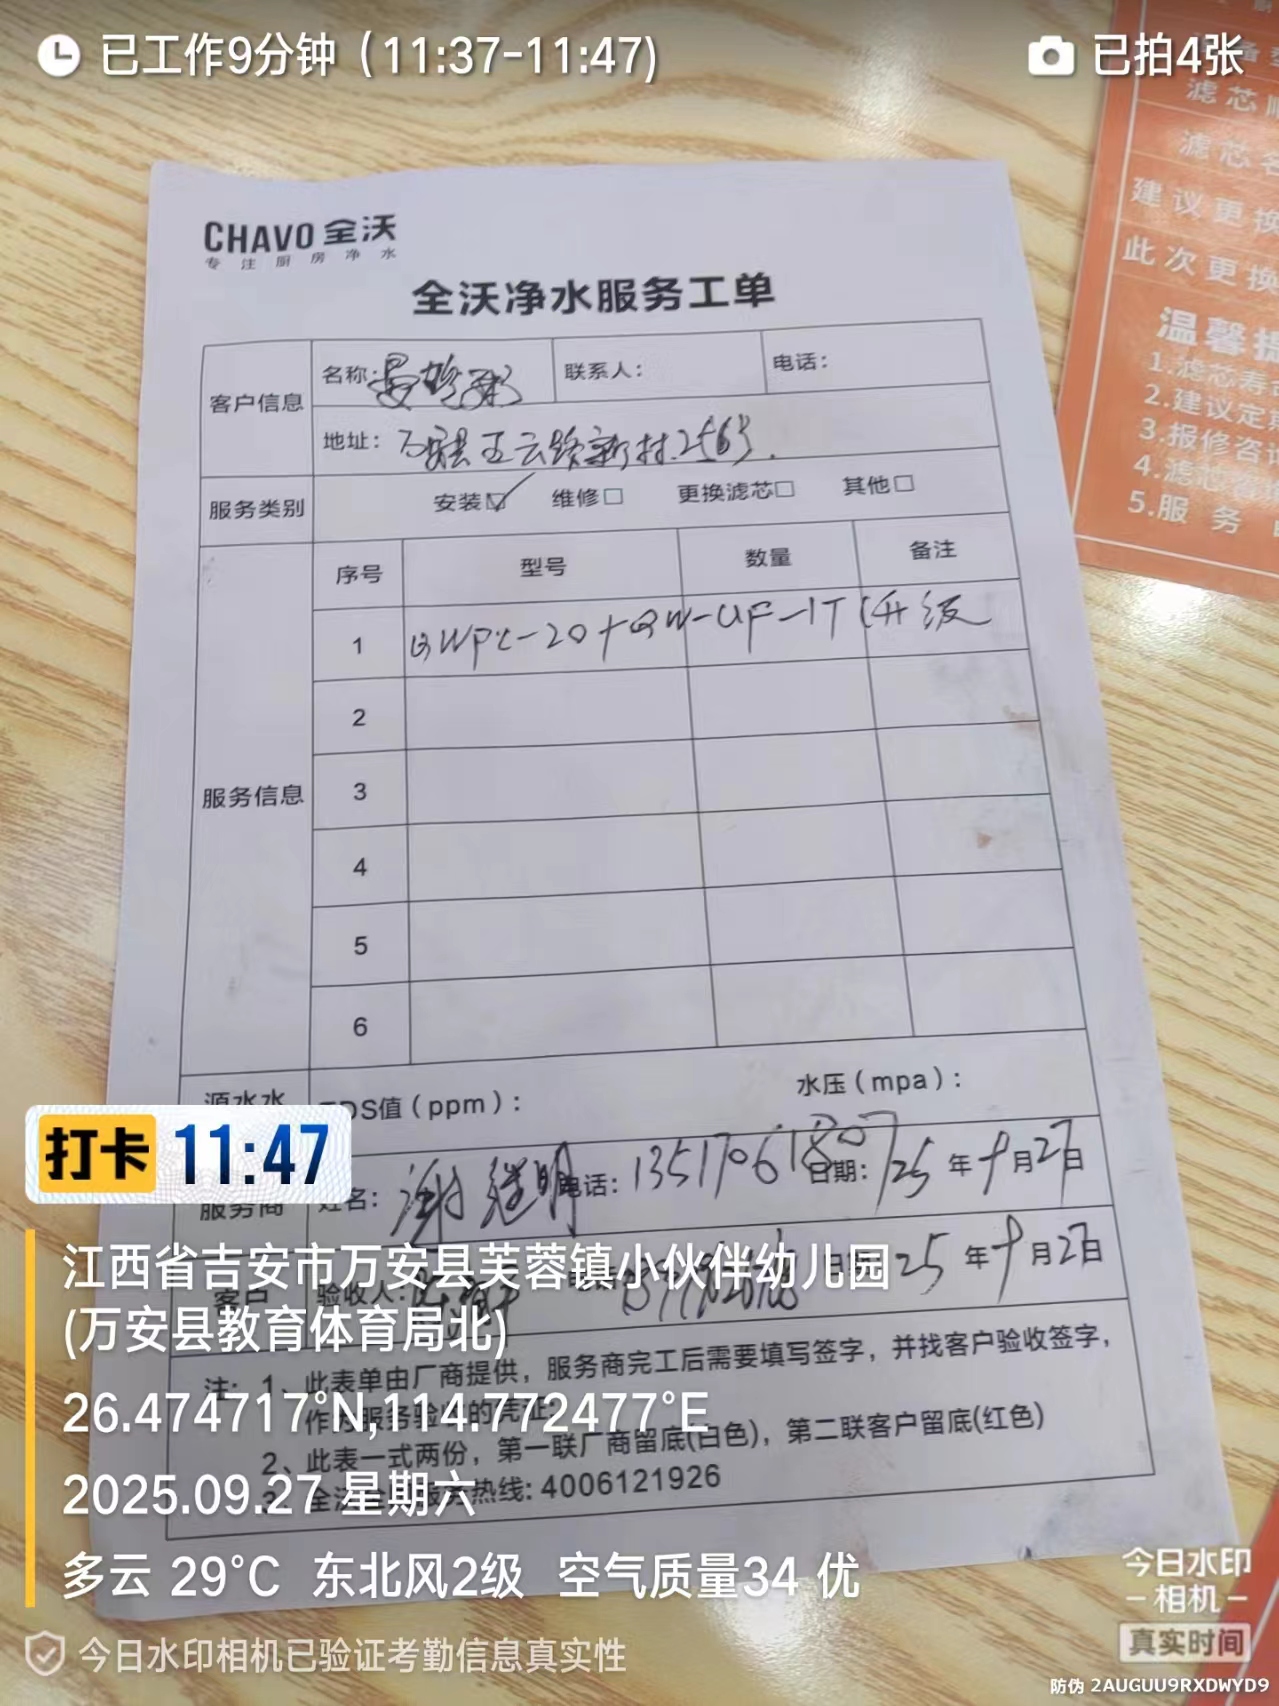 已工作9分钟（11:37-11:47)
已拍4张
滤芯
滤芯
建议更换
此次更换
温馨提
1.滤芯寿
2.建议定期
3.报修咨询
4.滤芯
5.服务
CHAVO 全沃
专注厨房净水
全沃净水服务工单
客户信息 名称: 联系人: 电话:
地址: 万安县五云路新村256号.
服务类别 安装☑ 维修□ 更换滤芯□ 其他□
服务信息 序号 型号 数量 备注
1 QWPC-20+QW-UF-1T(升级
2
3
4
5
6
源水水 TDS值(ppm): 水压(mpa):
服务商 姓名: 谢继明 电话: 13517061807 日期: 25年9月27日
客户 验收人: 25年9月27日
注: 1、此表单由厂商提供，服务商完工后需要填写签字，并找客户验收签字，
作为服务验收的凭证;
2、此表一式两份，第一联厂商留底(白色)，第二联客户留底(红色)
服务热线: 4006121926
打卡 11:47
江西省吉安市万安县芙蓉镇小伙伴幼儿园
(万安县教育体育局北)
26.474717°N,114.772477°E
2025.09.27 星期六
多云 29°C 东北风2级 空气质量34 优
今日水印相机已验证考勤信息真实性
今日水印
-相机-
真实时间
防伪 2AUGUU9RXDWYD9